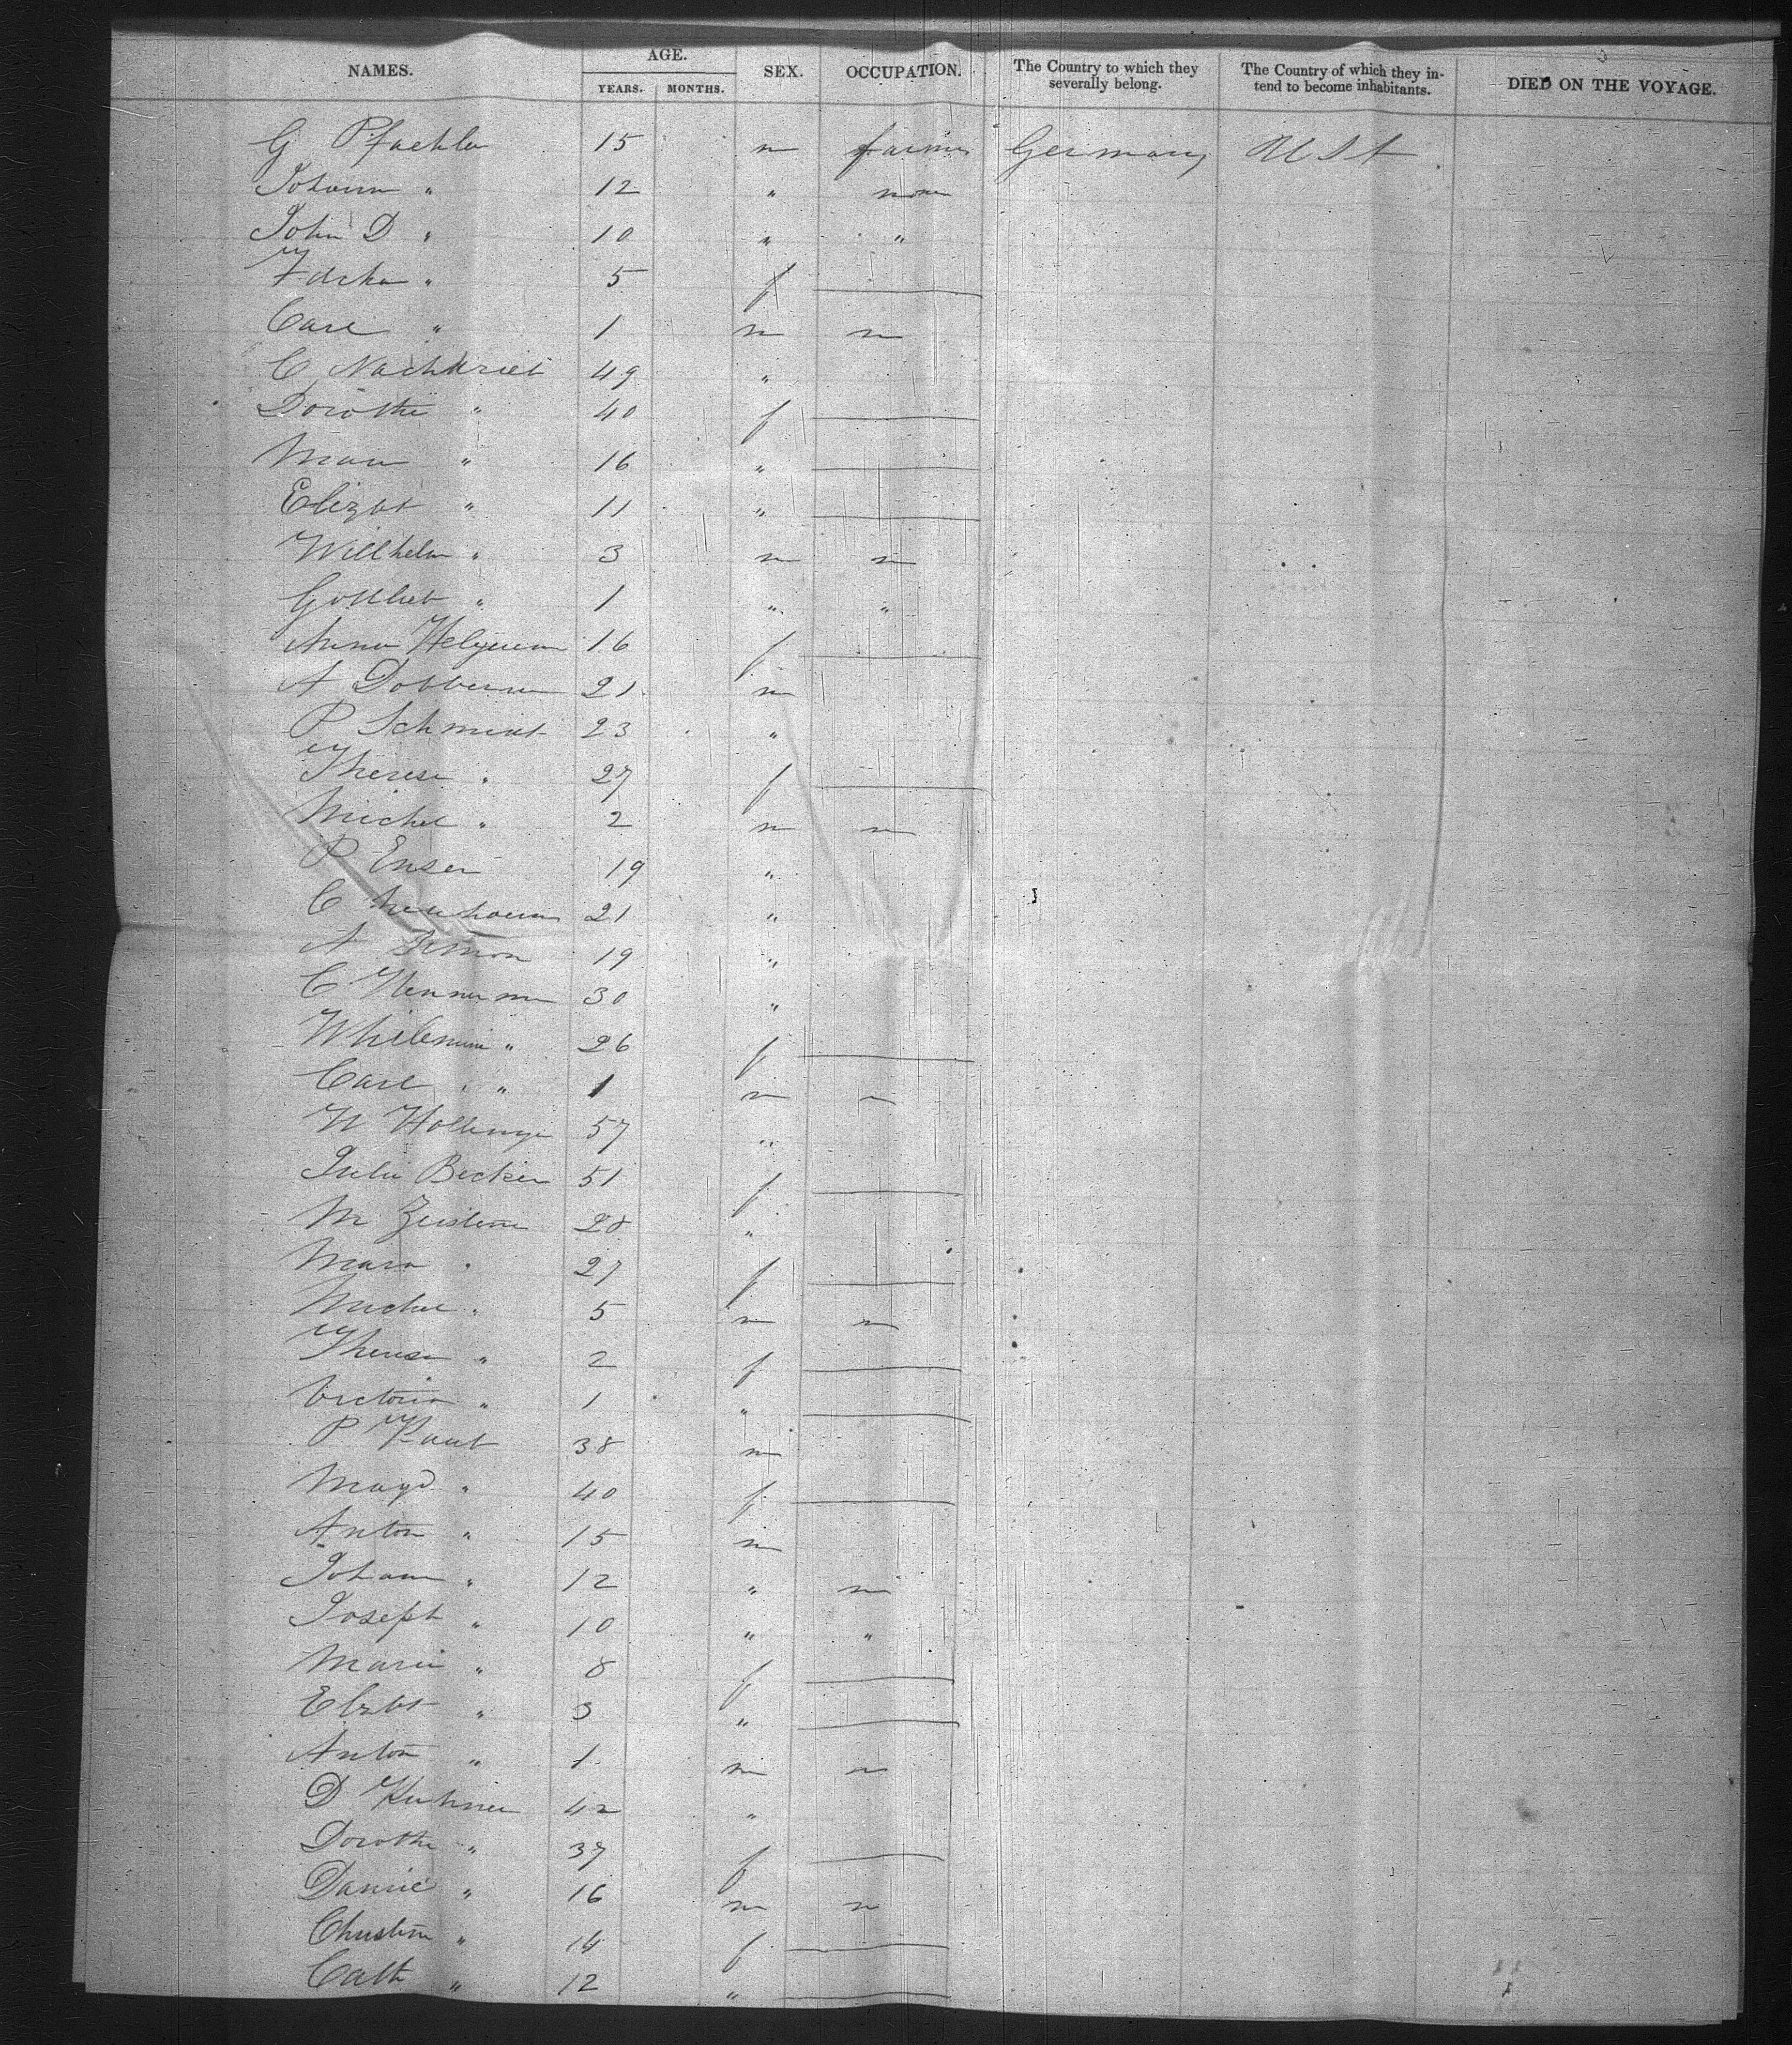 NAMES. AGE. YEARS. MONTHS. SEX. OCCUPATION. The Country to which they severally belong. The Country of which they intend to become inhabitants. DIED ON THE VOYAGE.
G Pfaehler 15 m farmer Germany USA
Johann " 12 " none
John D " 10 " "
" 5 f
Carl " 1 m n
C Nachtrieb 49 "
Dorothe " 40 f
" 16 "
Elizbt " 11 "
Willhelm " 3 m n
Gottlieb " 1 " "
Anna 16 f
A 21 m
P Schmidt 23 "
Therese " 27 f
Michel " 2 m n
P 19 "
C 21 "
A Simon 19 "
C 30 "
" 26 f
Carl " 1 m n
57 "
Julie Becker 51 f
M 28 "
" 27 f
Michel " 5 m n
Therese " 2 f
Victoria " 1 "
P 38 m
Magd " 40 f
Anton " 15 m
Johann " 12 " n
Joseph " 10 " "
Marie " 8 f
Elzbt " 3 "
Anton " 1 m n
D 42 "
Dorothe " 37 f
Daniel " 16 m n
Christin " 14 f
Cath " 12 "